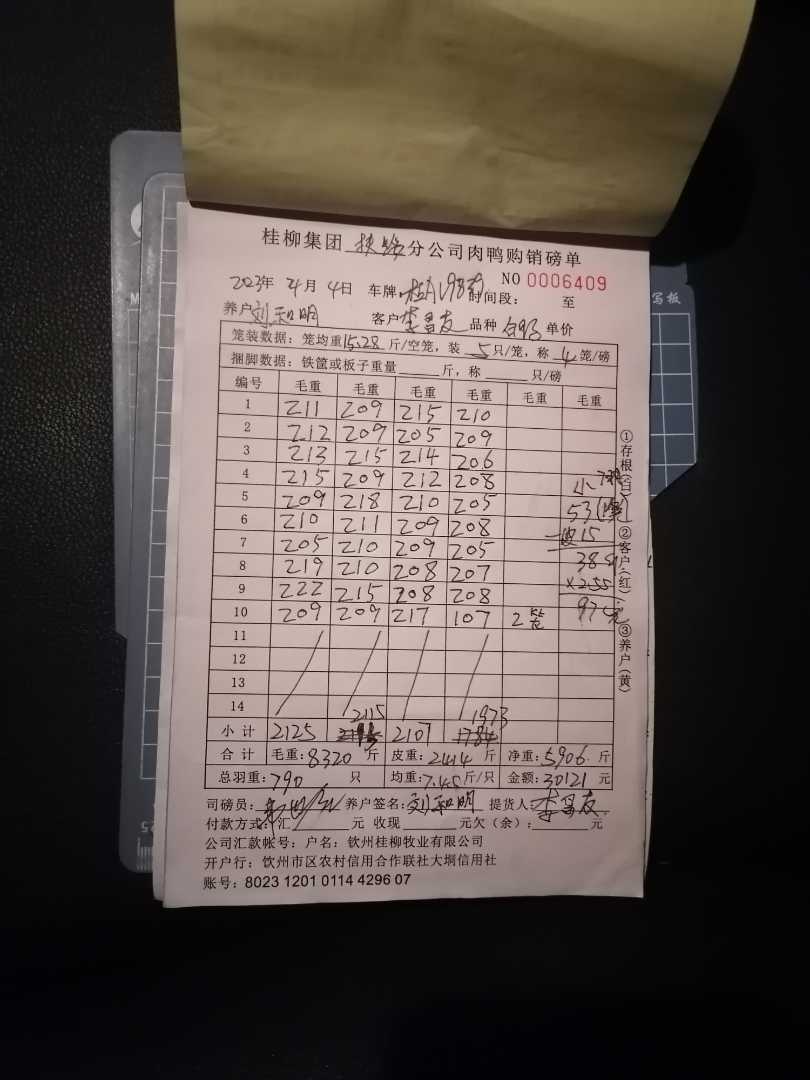 桂柳集团 扶绥 分公司肉鸭购销磅单
NO 0006409
2023年 4月 4日 车牌: 时间段: 至
养户 刘和明 客户 李昌友 品种 白鸭 单价
笼装数据: 笼均重 15.28 斤/空笼, 装 5 只/笼, 称 4 笼/磅
捆脚数据: 铁筐或板子重量 斤, 称 只/磅
编号 毛重 毛重 毛重 毛重 毛重 毛重
1 211 209 215 210
2 212 209 205 209
3 213 215 214 206
4 215 209 212 208 小
5 209 218 210 205 53
6 210 211 209 208 一皮15
7 205 210 209 205 38斤
8 219 210 208 207 ×2.55
9 222 215 208 208 97元
10 209 209 217 107 2笼
11
12
13
14 2115 1973
小计 2125 2107 1784
合计 毛重: 8320 斤 皮重: 2414 斤 净重: 5906 斤
总羽重: 790 只 均重: 7.45 斤/只 金额: 30121 元
司磅员: 养户签名: 刘和明 提货人: 李昌友
付款方式: 汇 元 收现 元欠(余): 元
公司汇款帐号: 户名: 钦州桂柳牧业有限公司
开户行: 钦州市区农村信用合作联社大垌信用社
账号: 8023 1201 0114 4296 07
①存根(白) ②客户(红) ③养户(黄)
写板